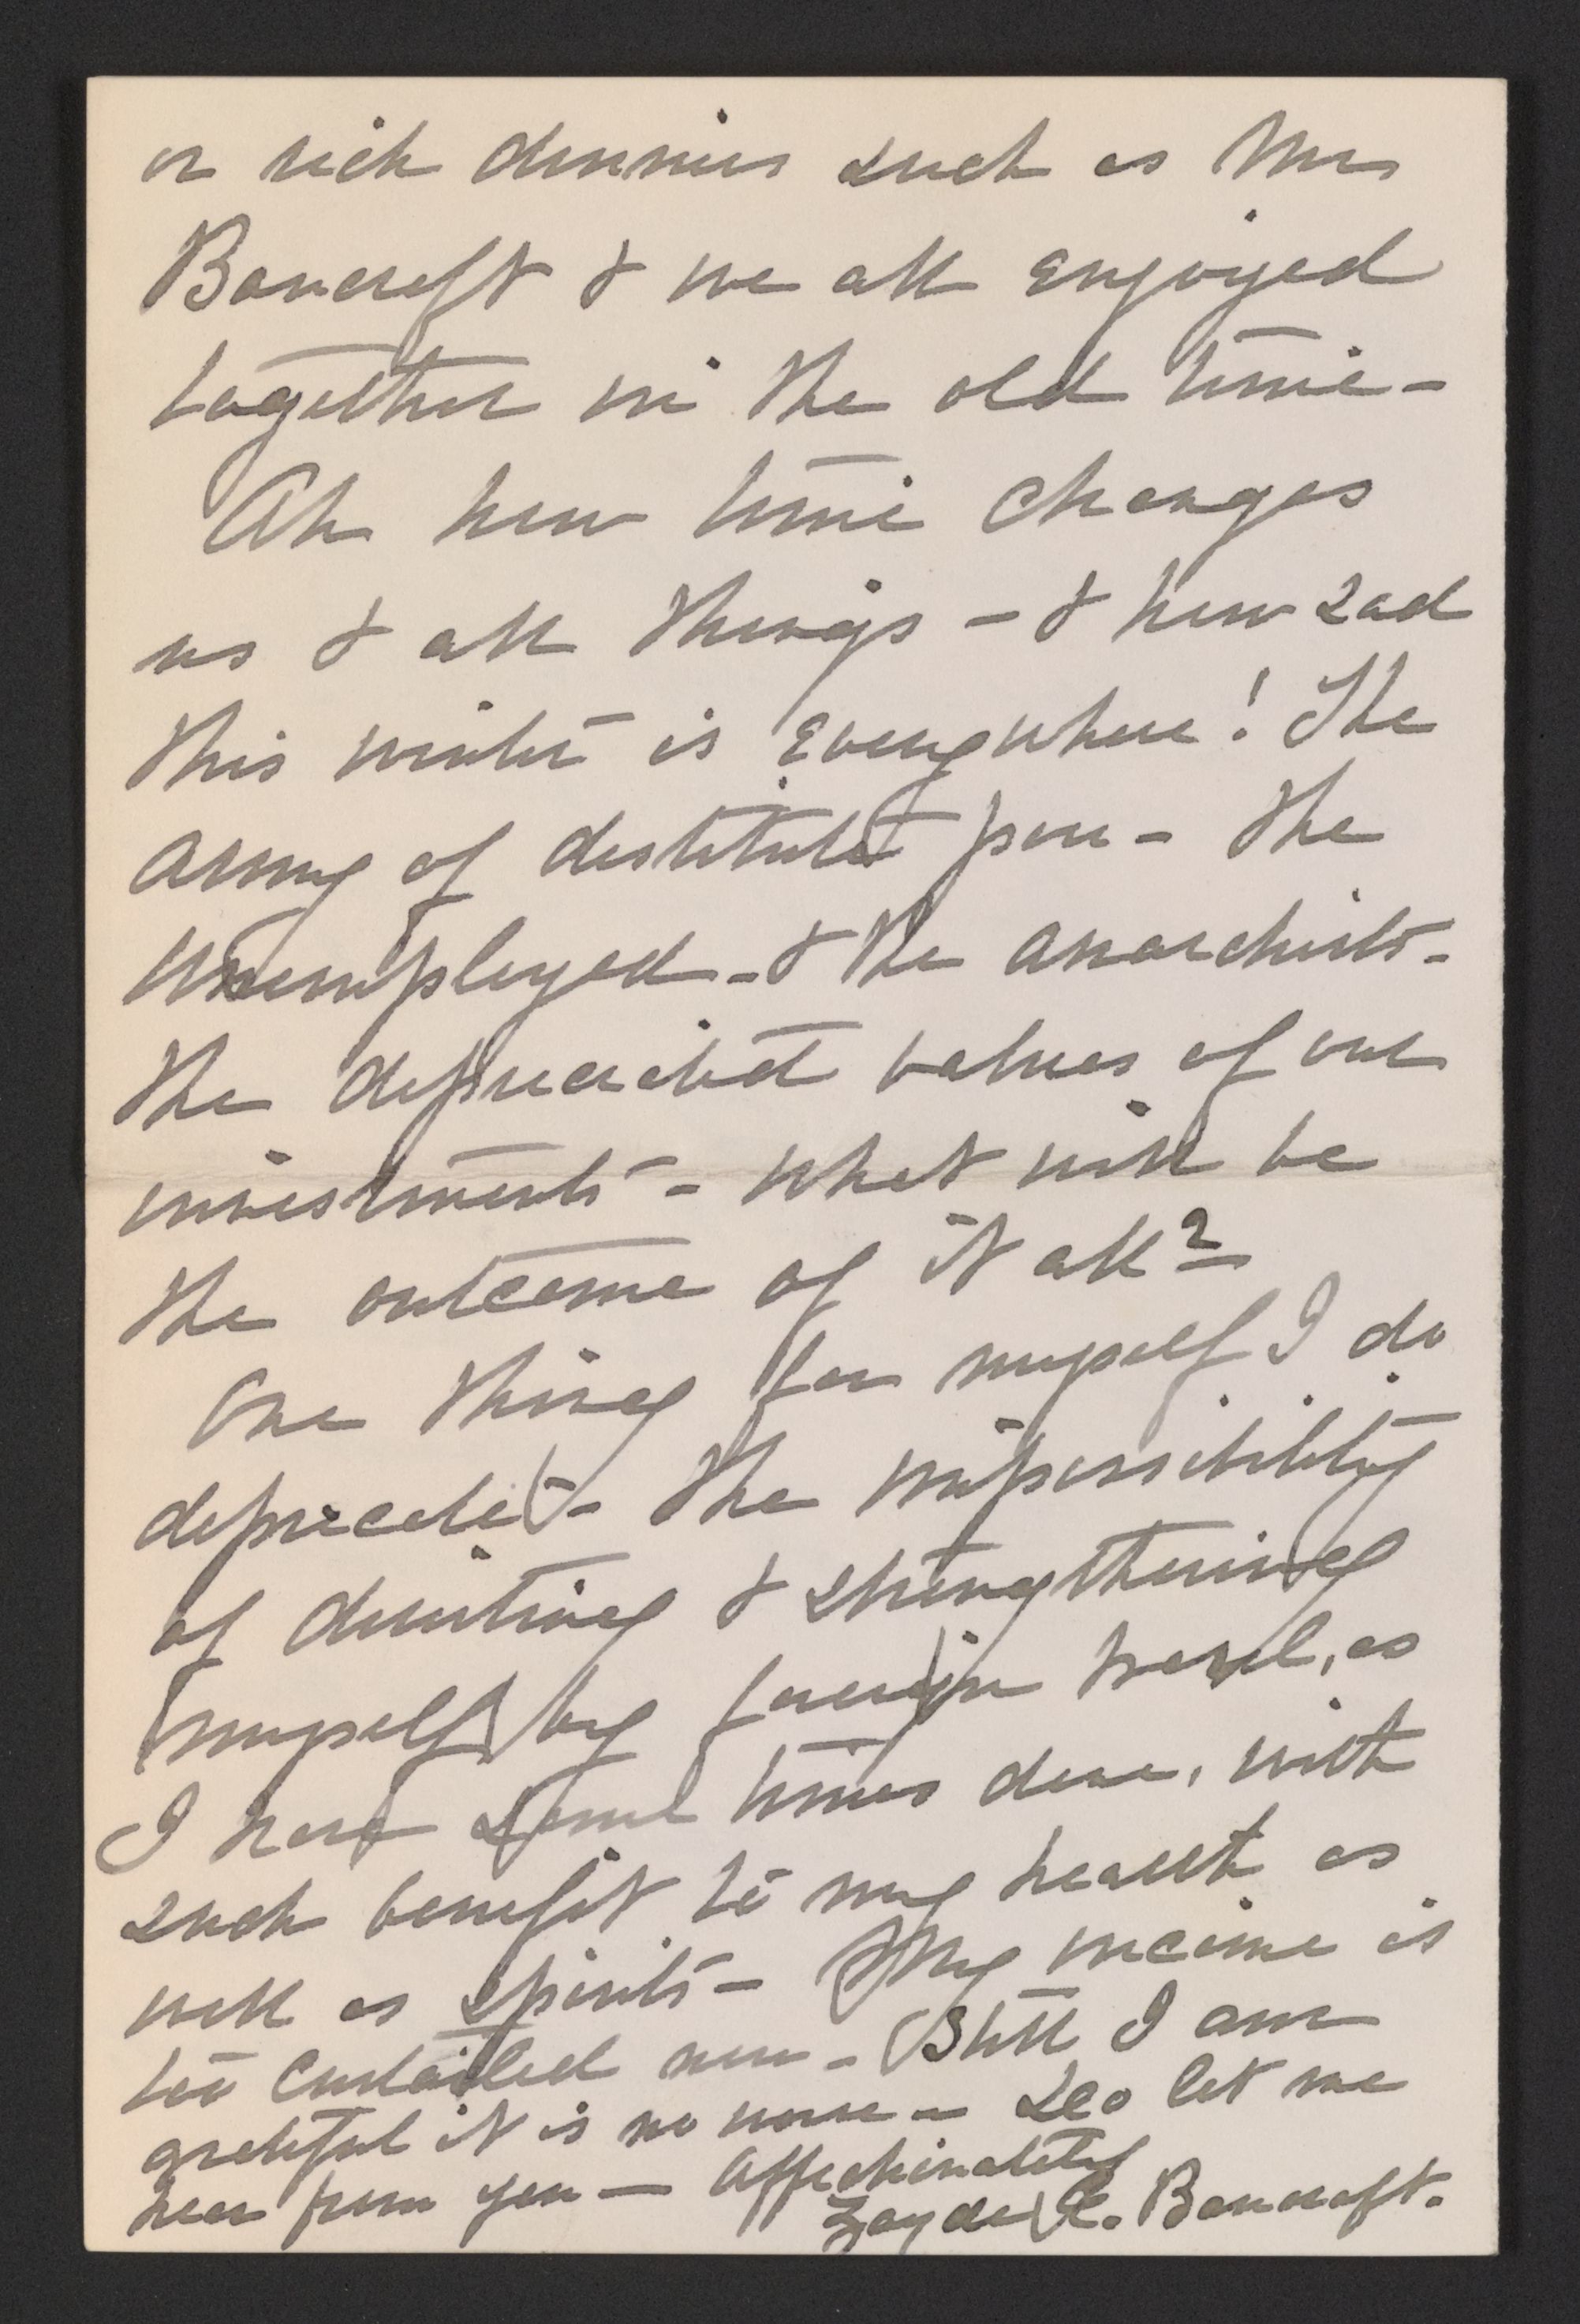 or rich dinners such as Mrs
Bancroft & we all enjoyed
together in the old time -
Ah how time changes
us & all things - & how sad
this winter is everywhere! The
army of destitute poor - the
unemployed - & the anarchists -
the depreciated values of our
investments - what will be
the outcome of it all?
One thing for myself I do
deprecate - the impossibility
of diverting & strengthening
myself by foreign travel, as
I have some times done, with
such benefit to my health as
well as spirits - My income is
too curtailed now - Still I am
grateful it is no worse - Do let me
hear from you - Affectionately
Bancroft.